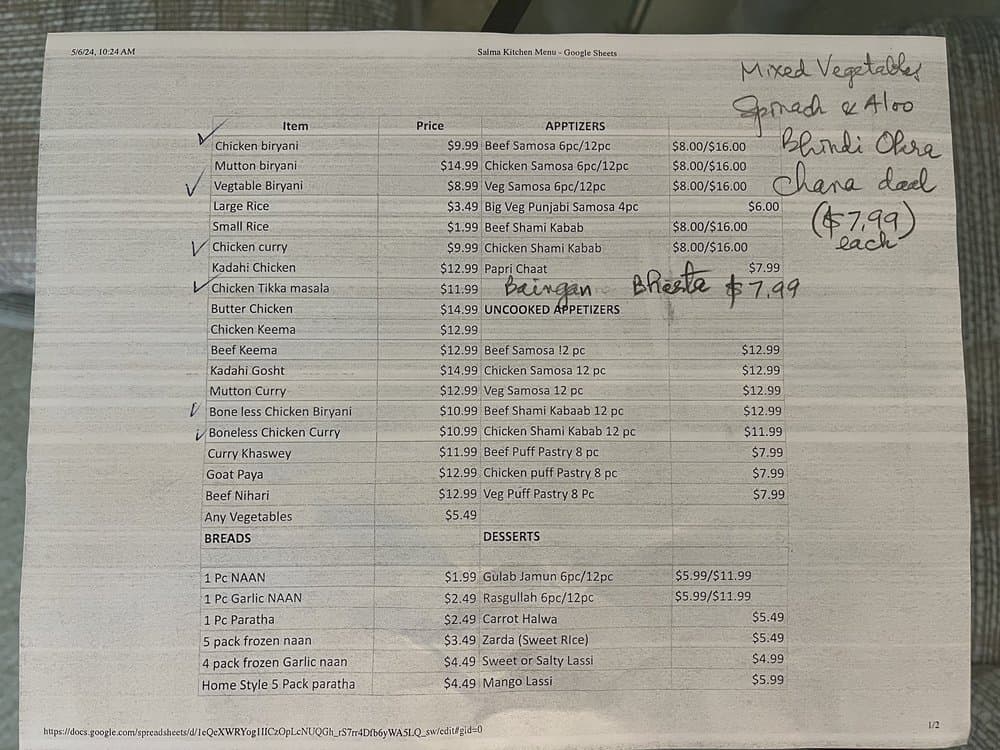 5/6/24, 10:24 AM Salma Kitchen Menu - Google Sheets
Mixed Vegetables
Spinach & Aloo
Bhindi Okra
Chana daal
($7.99)
each
Item Price APPTIZERS
Chicken biryani $9.99 Beef Samosa 6pc/12pc $8.00/$16.00
Mutton biryani $14.99 Chicken Samosa 6pc/12pc $8.00/$16.00
Vegtable Biryani $8.99 Veg Samosa 6pc/12pc $8.00/$16.00
Large Rice $3.49 Big Veg Punjabi Samosa 4pc $6.00
Small Rice $1.99 Beef Shami Kabab $8.00/$16.00
Chicken curry $9.99 Chicken Shami Kabab $8.00/$16.00
Kadahi Chicken $12.99 Papri Chaat $7.99
Chicken Tikka masala $11.99 Baingan Bhasta $7.99
Butter Chicken $14.99 UNCOOKED APPETIZERS
Chicken Keema $12.99
Beef Keema $12.99 Beef Samosa !2 pc $12.99
Kadahi Gosht $14.99 Chicken Samosa 12 pc $12.99
Mutton Curry $12.99 Veg Samosa 12 pc $12.99
Bone less Chicken Biryani $10.99 Beef Shami Kabaab 12 pc $12.99
Boneless Chicken Curry $10.99 Chicken Shami Kabab 12 pc $11.99
Curry Khaswey $11.99 Beef Puff Pastry 8 pc $7.99
Goat Paya $12.99 Chicken puff Pastry 8 pc $7.99
Beef Nihari $12.99 Veg Puff Pastry 8 Pc $7.99
Any Vegetables $5.49
BREADS DESSERTS
1 Pc NAAN $1.99 Gulab Jamun 6pc/12pc $5.99/$11.99
1 Pc Garlic NAAN $2.49 Rasgullah 6pc/12pc $5.99/$11.99
1 Pc Paratha $2.49 Carrot Halwa $5.49
5 pack frozen naan $3.49 Zarda (Sweet RIce) $5.49
4 pack frozen Garlic naan $4.49 Sweet or Salty Lassi $4.99
Home Style 5 Pack paratha $4.49 Mango Lassi $5.99
1/2